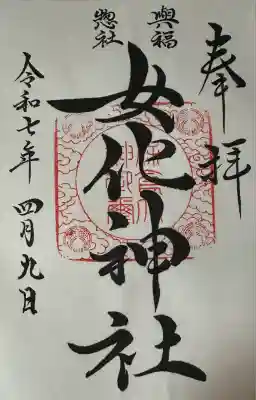 奉拝
與福
惣社
女化神社
令和七年 四月九日